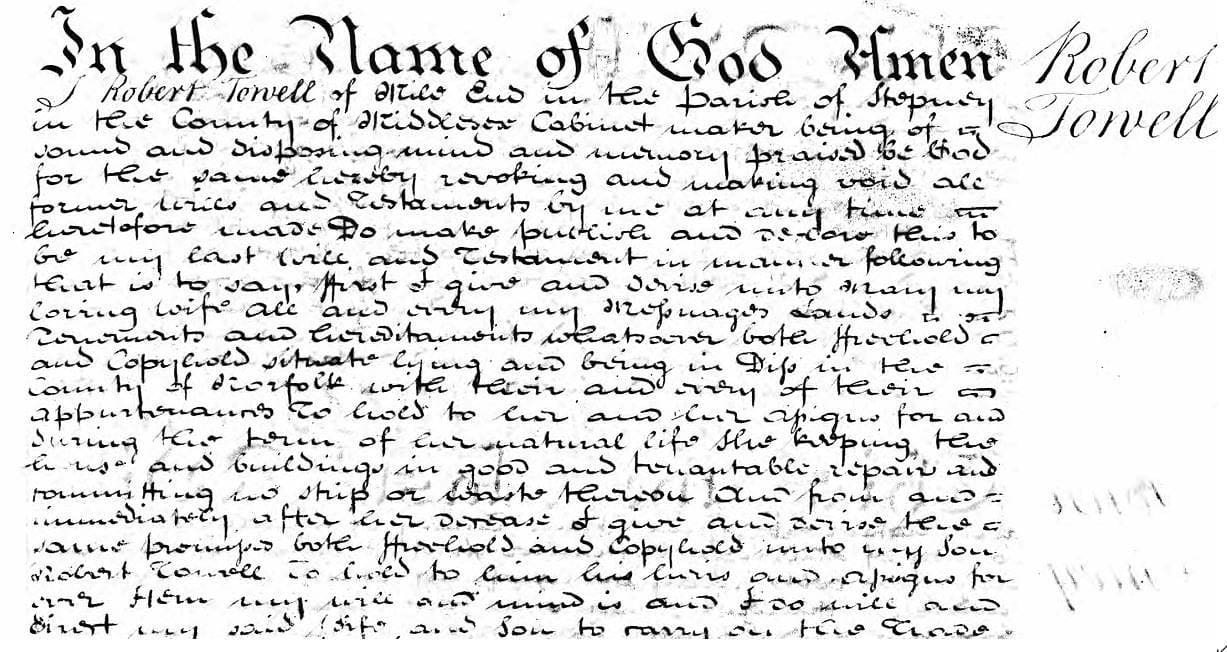 In the Name of God Amen
Robert
Towell
I Robert Towell of Mile End in the Parish of Stepney
in the County of Middlesex Cabinet maker being of
sound and disposing mind and memory praised be God
for the same hereby revoking and making void all
former wills and Testaments by me at any time
heretofore made Do make publish and declare this to
be my last Will and Testament in manner following
that is to say first I give and devise unto Mary my
loving wife all and every my Messuages Lands
Tenements and hereditaments whatsoever both ffreehold
and Copyhold situate lying and being in Diss in the
County of Norfolk with their and every of their
appurtenances To hold to her and her assigns for and
during the term of her natural life She keeping the
house and buildings in good and tenantable repair and
committing no strip or waste thereon And from and
immediately after her decease I give and devise the
same premises both ffreehold and Copyhold unto my Son
Robert Towell To hold to him his heirs and assigns for
ever Item my will and mind is and I do will and
direct my said Wife and Son to carry on the Trade